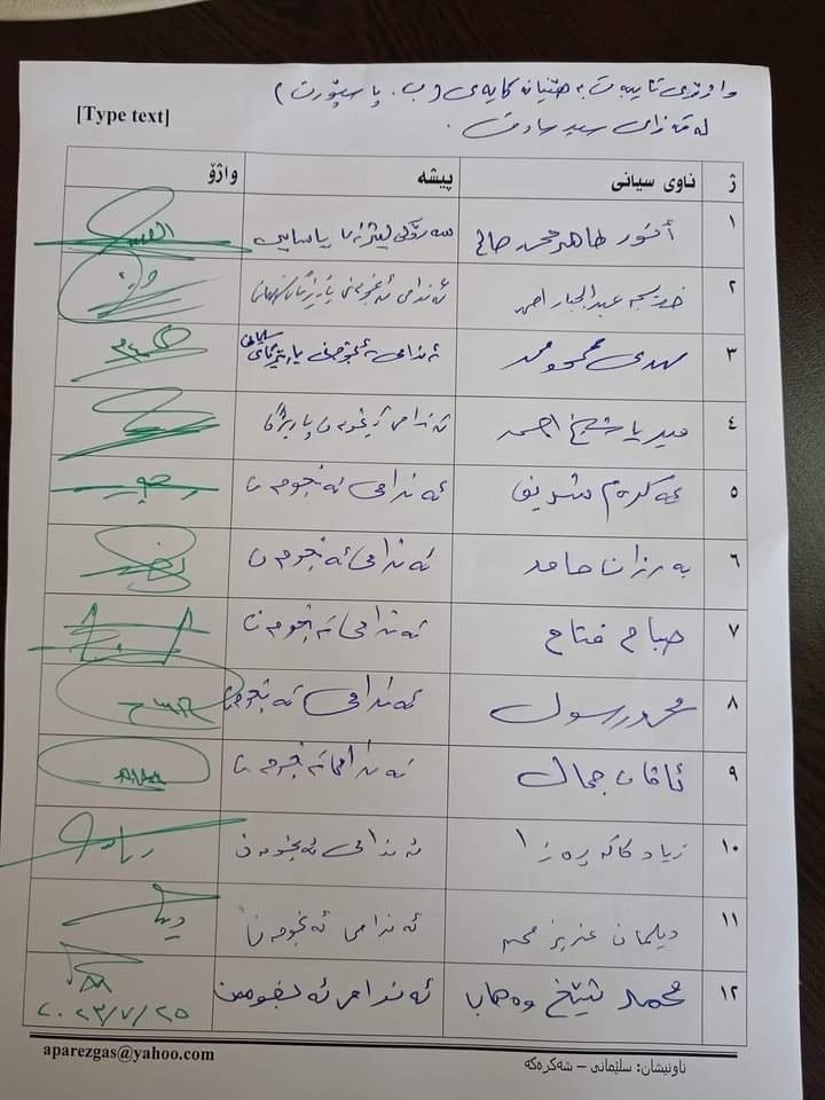 واژۆی تایبەت بە هێنانە کایەی (ب. پاسپۆرت)
لە قەزای سید صادق.
[Type text]
ژ ناوی سیانی پیشە واژۆ
١ أنور طاهر محمد صالح سەرۆکی لیژنەی یاسایی
٢ خدیجە عبدالجبار احمد ئەندامی ئەنجومەنی پارێزگای
٣ مهدی محمود محمد ئەندامی ئەنجومەنی پارێزگای سلێمانی
٤ میدیا شیخ احمد ئەندامی ئەنجومەنی پارێزگا
٥ ئەکرەم شریف ئەندامی ئەنجومەن
٦ بەرزان حامد ئەندامی ئەنجومەن
٧ صباح فتاح ئەندامی ئەنجومەن
٨ محمد رسول ئەندامی ئەنجومەن
٩ ئاڤان جمال ئەندامی ئەنجومەن
١٠ زیاد کاکە ڕەزا ئەندامی ئەنجومەن
١١ دیلمان عزیز محمد ئەندامی ئەنجومەن
١٢ محمد شێخ وەهاب ئەندامی ئەنجومەن
٢٠٢٣/٧/٢٥
aparezgas@yahoo.com
ناونیشان: سلێمانی – شەکرەکە